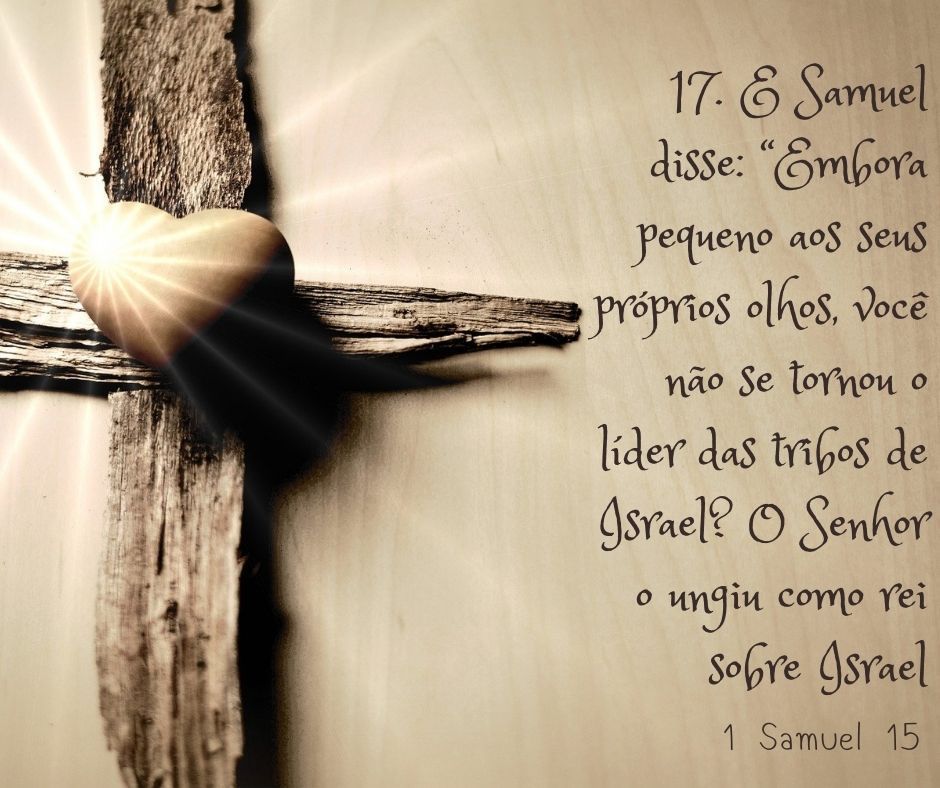 17. E Samuel
disse: “Embora
pequeno aos seus
próprios olhos, você
não se tornou o
líder das tribos de
Israel? O Senhor
o ungiu como rei
sobre Israel
1 Samuel 15